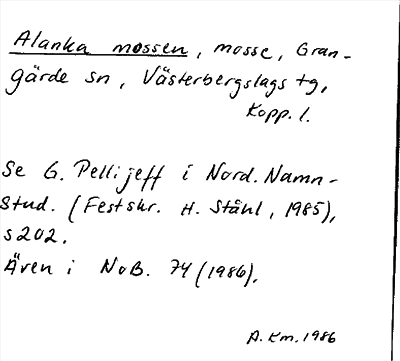 Alanka mossen, mosse, Gran-
gärde sn, Västerbergslags tg,
Kopp. l.
Se G. Pellijeff i Nord. Namn-
stud. (Festskr. H. Ståhl, 1985),
s 202.
Även i NoB. 74 (1986).
A. Km. 1986